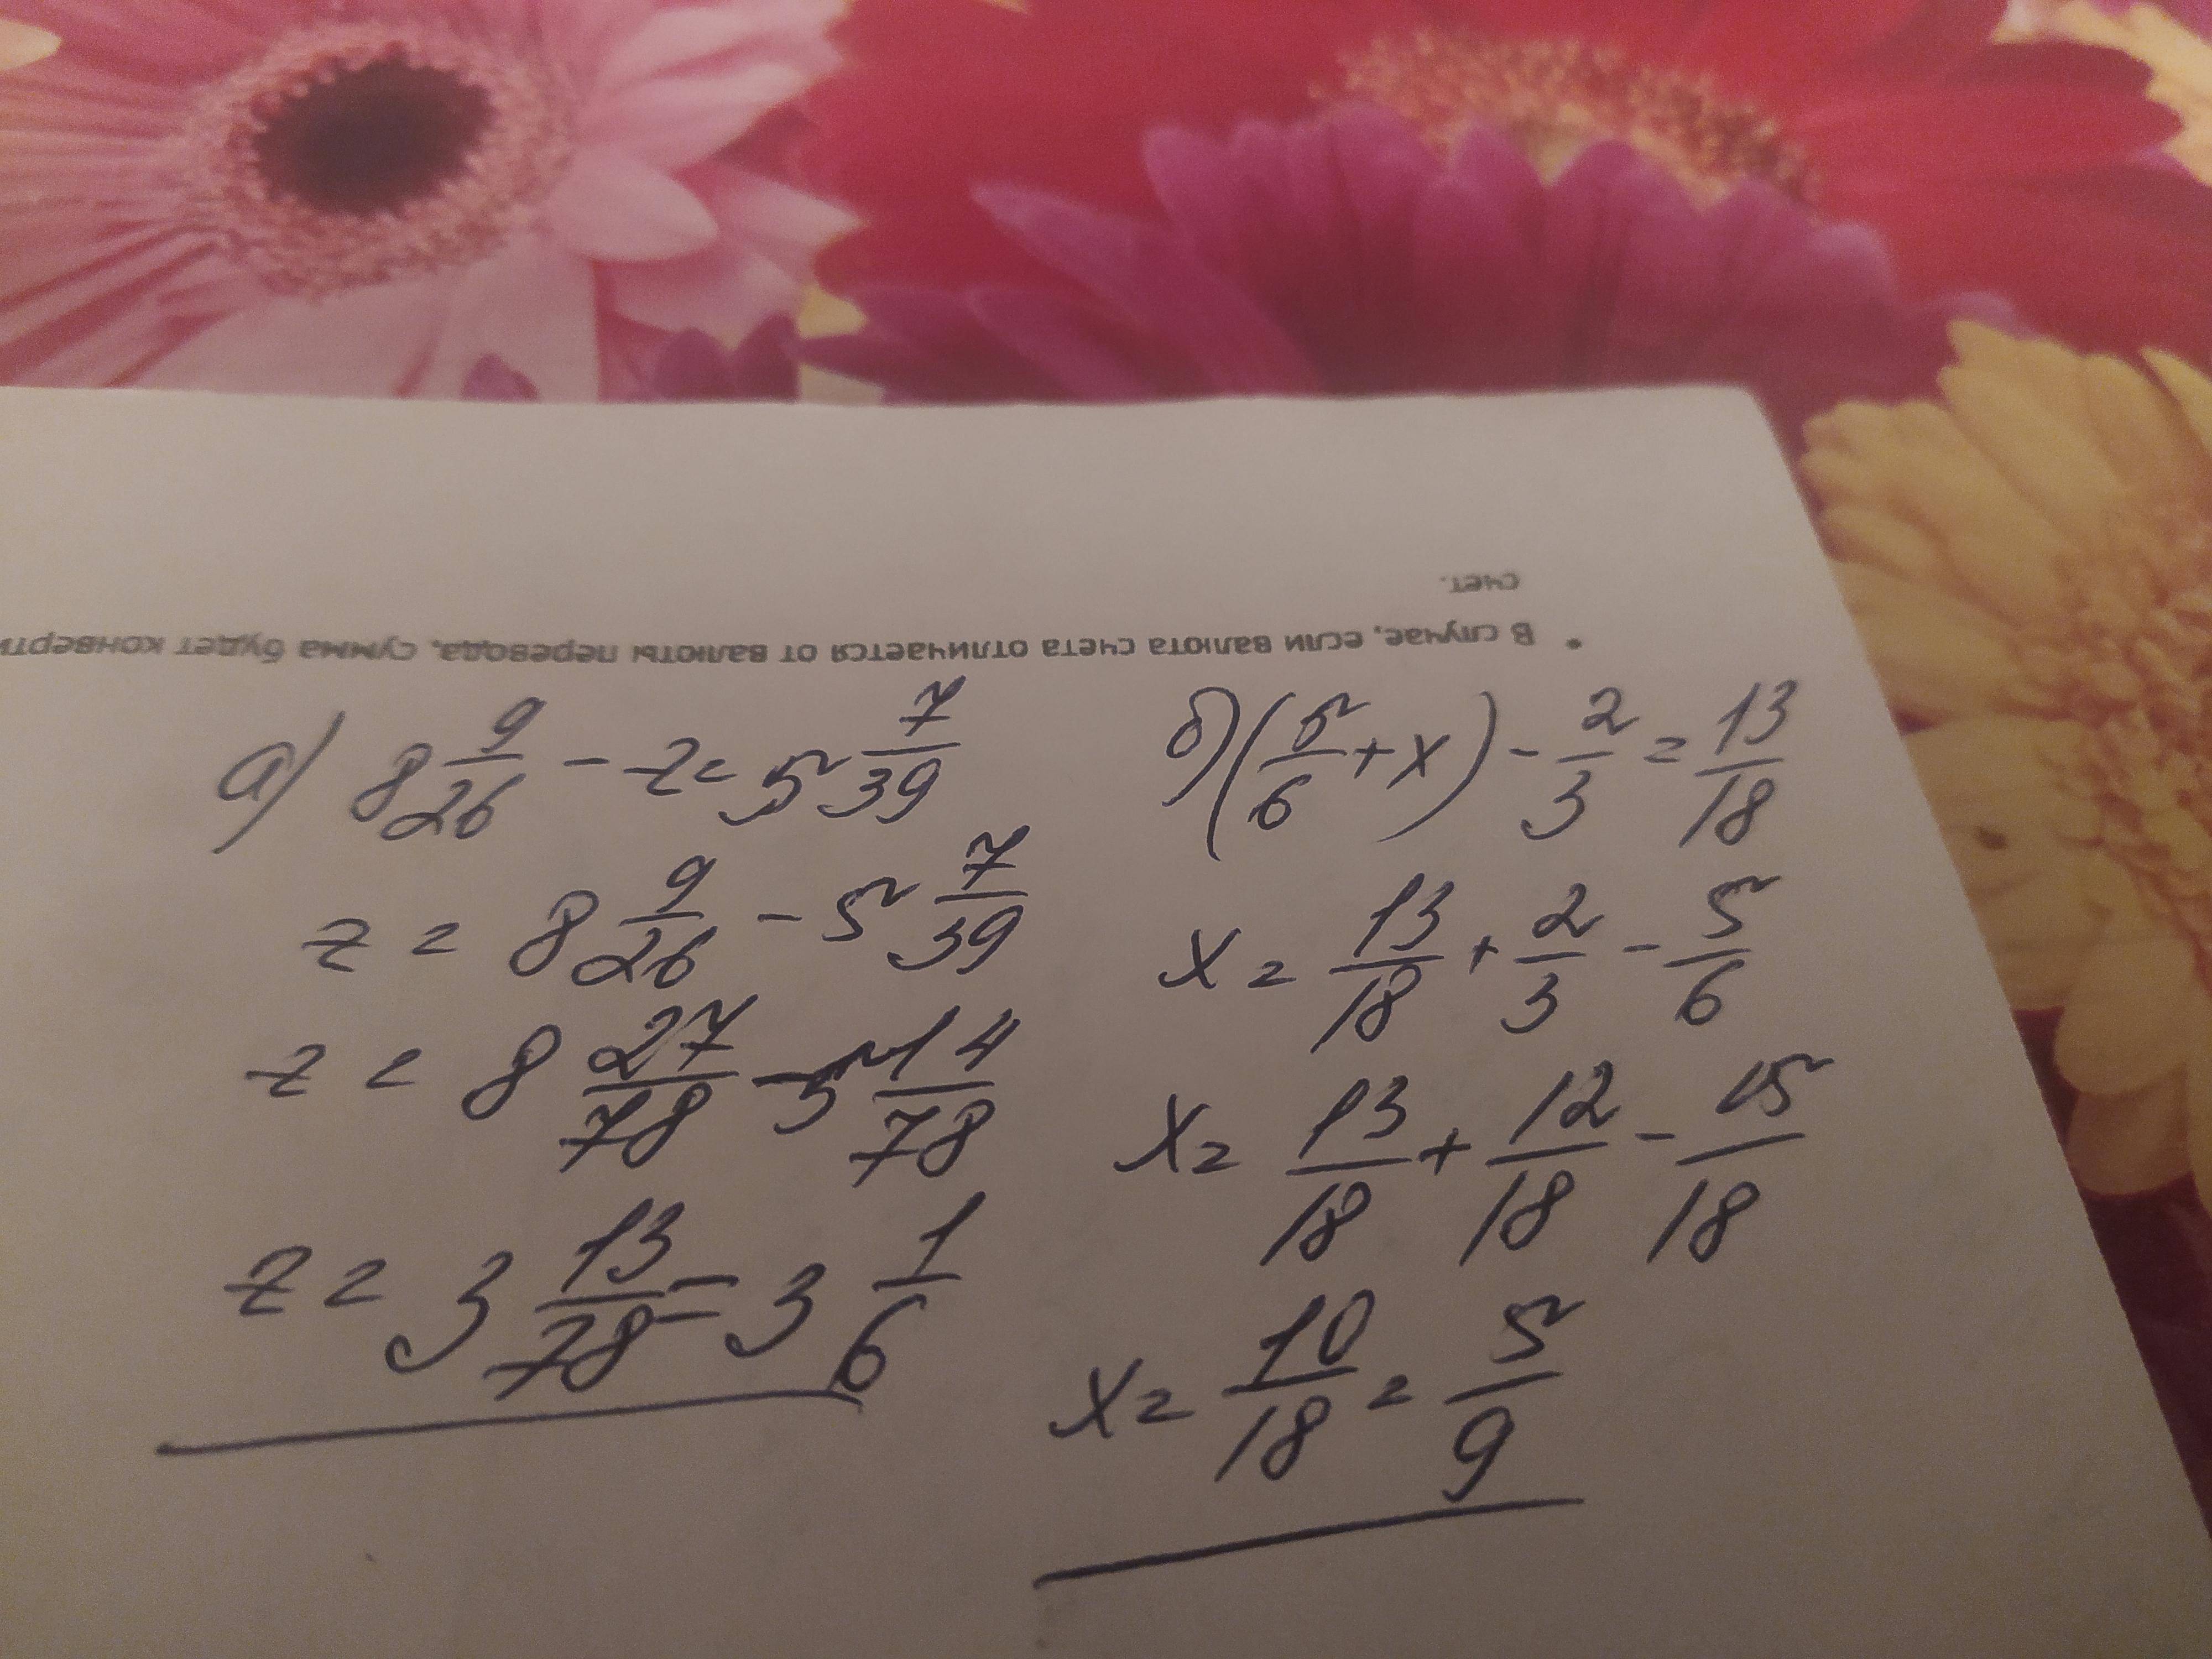 * В случае, если валюта счета отличается от валюты перевода, сумма будет конверти
счет.
а) 8 9/26 - z = 5 7/39
z = 8 9/26 - 5 7/39
z = 8 27/78 - 5 14/78
z = 3 13/78 = 3 1/6
б) (5/6 + x) - 2/3 = 13/18
x = 13/18 + 2/3 - 5/6
x = 13/18 + 12/18 - 15/18
x = 10/18 = 5/9